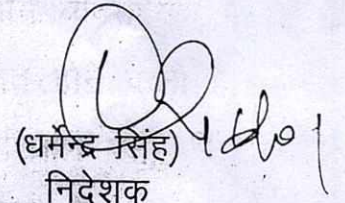 (धर्मेन्द्र सिंह)
निदेशक